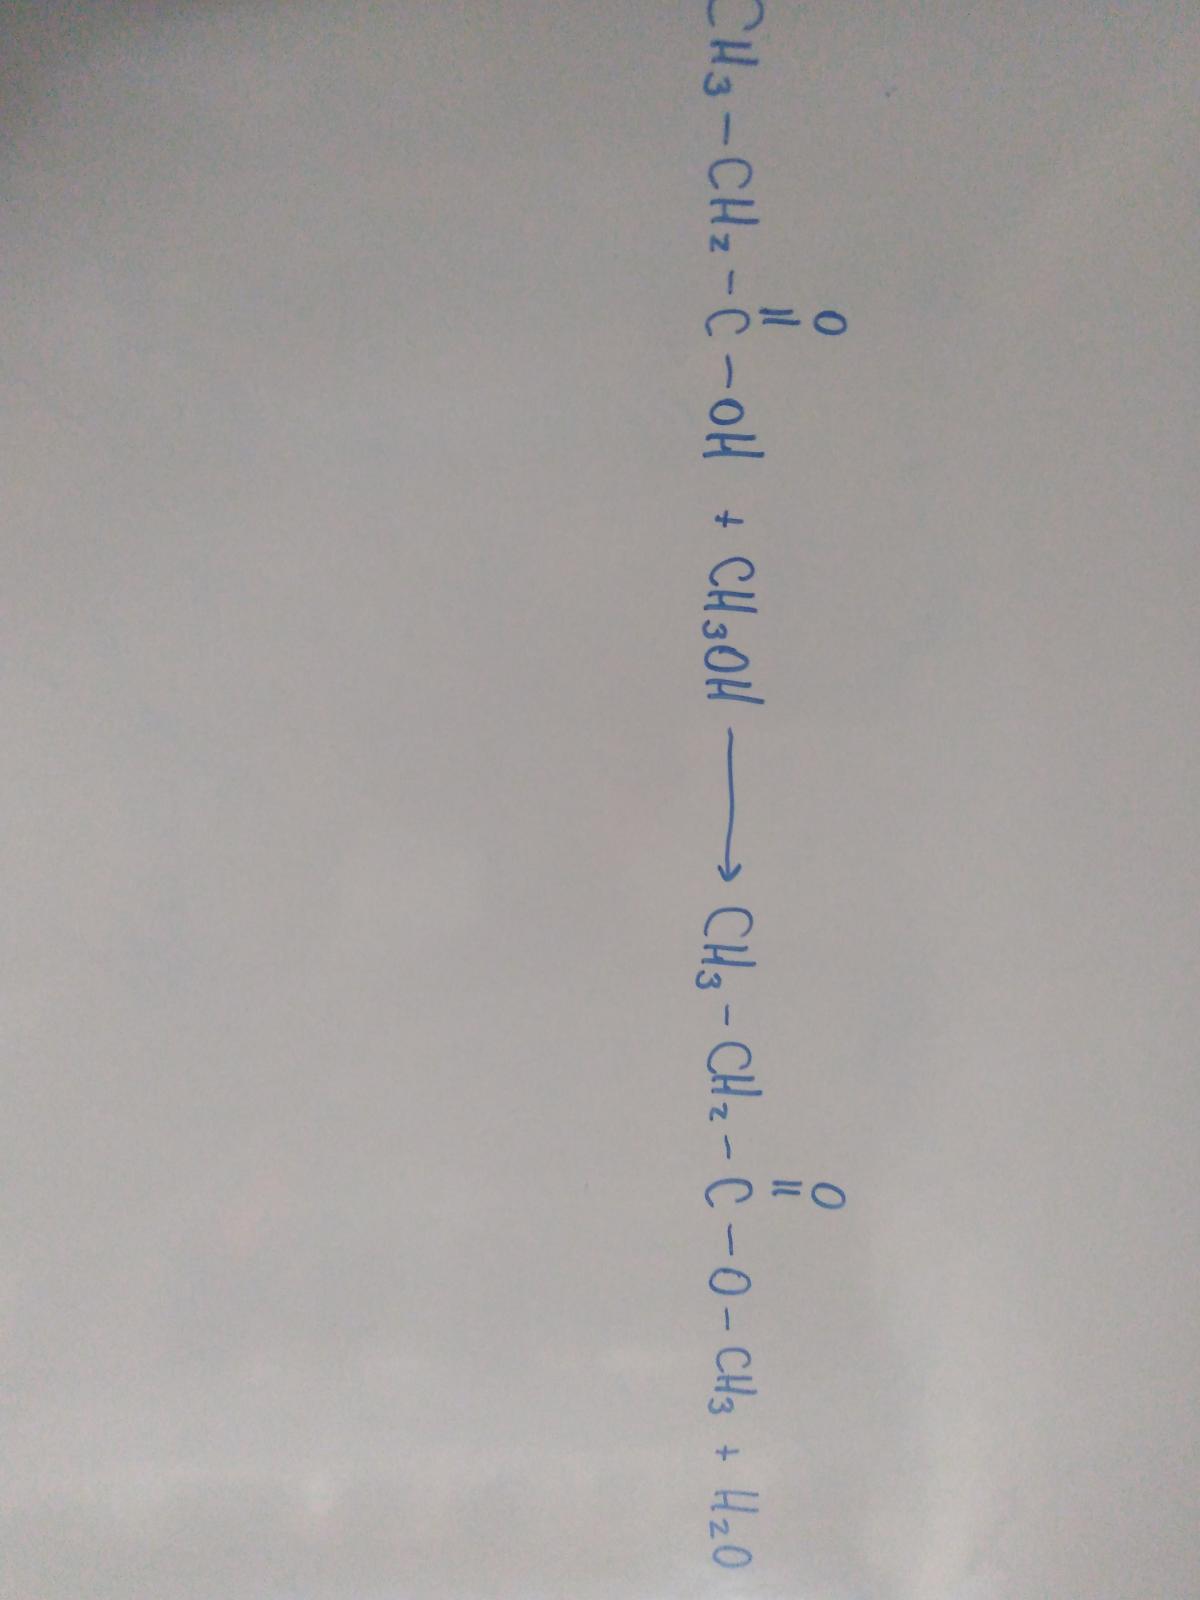 O O
CH3 – CH2 – C – OH + CH3OH ⟶ CH3 – CH2 – C – O – CH3 + H2O